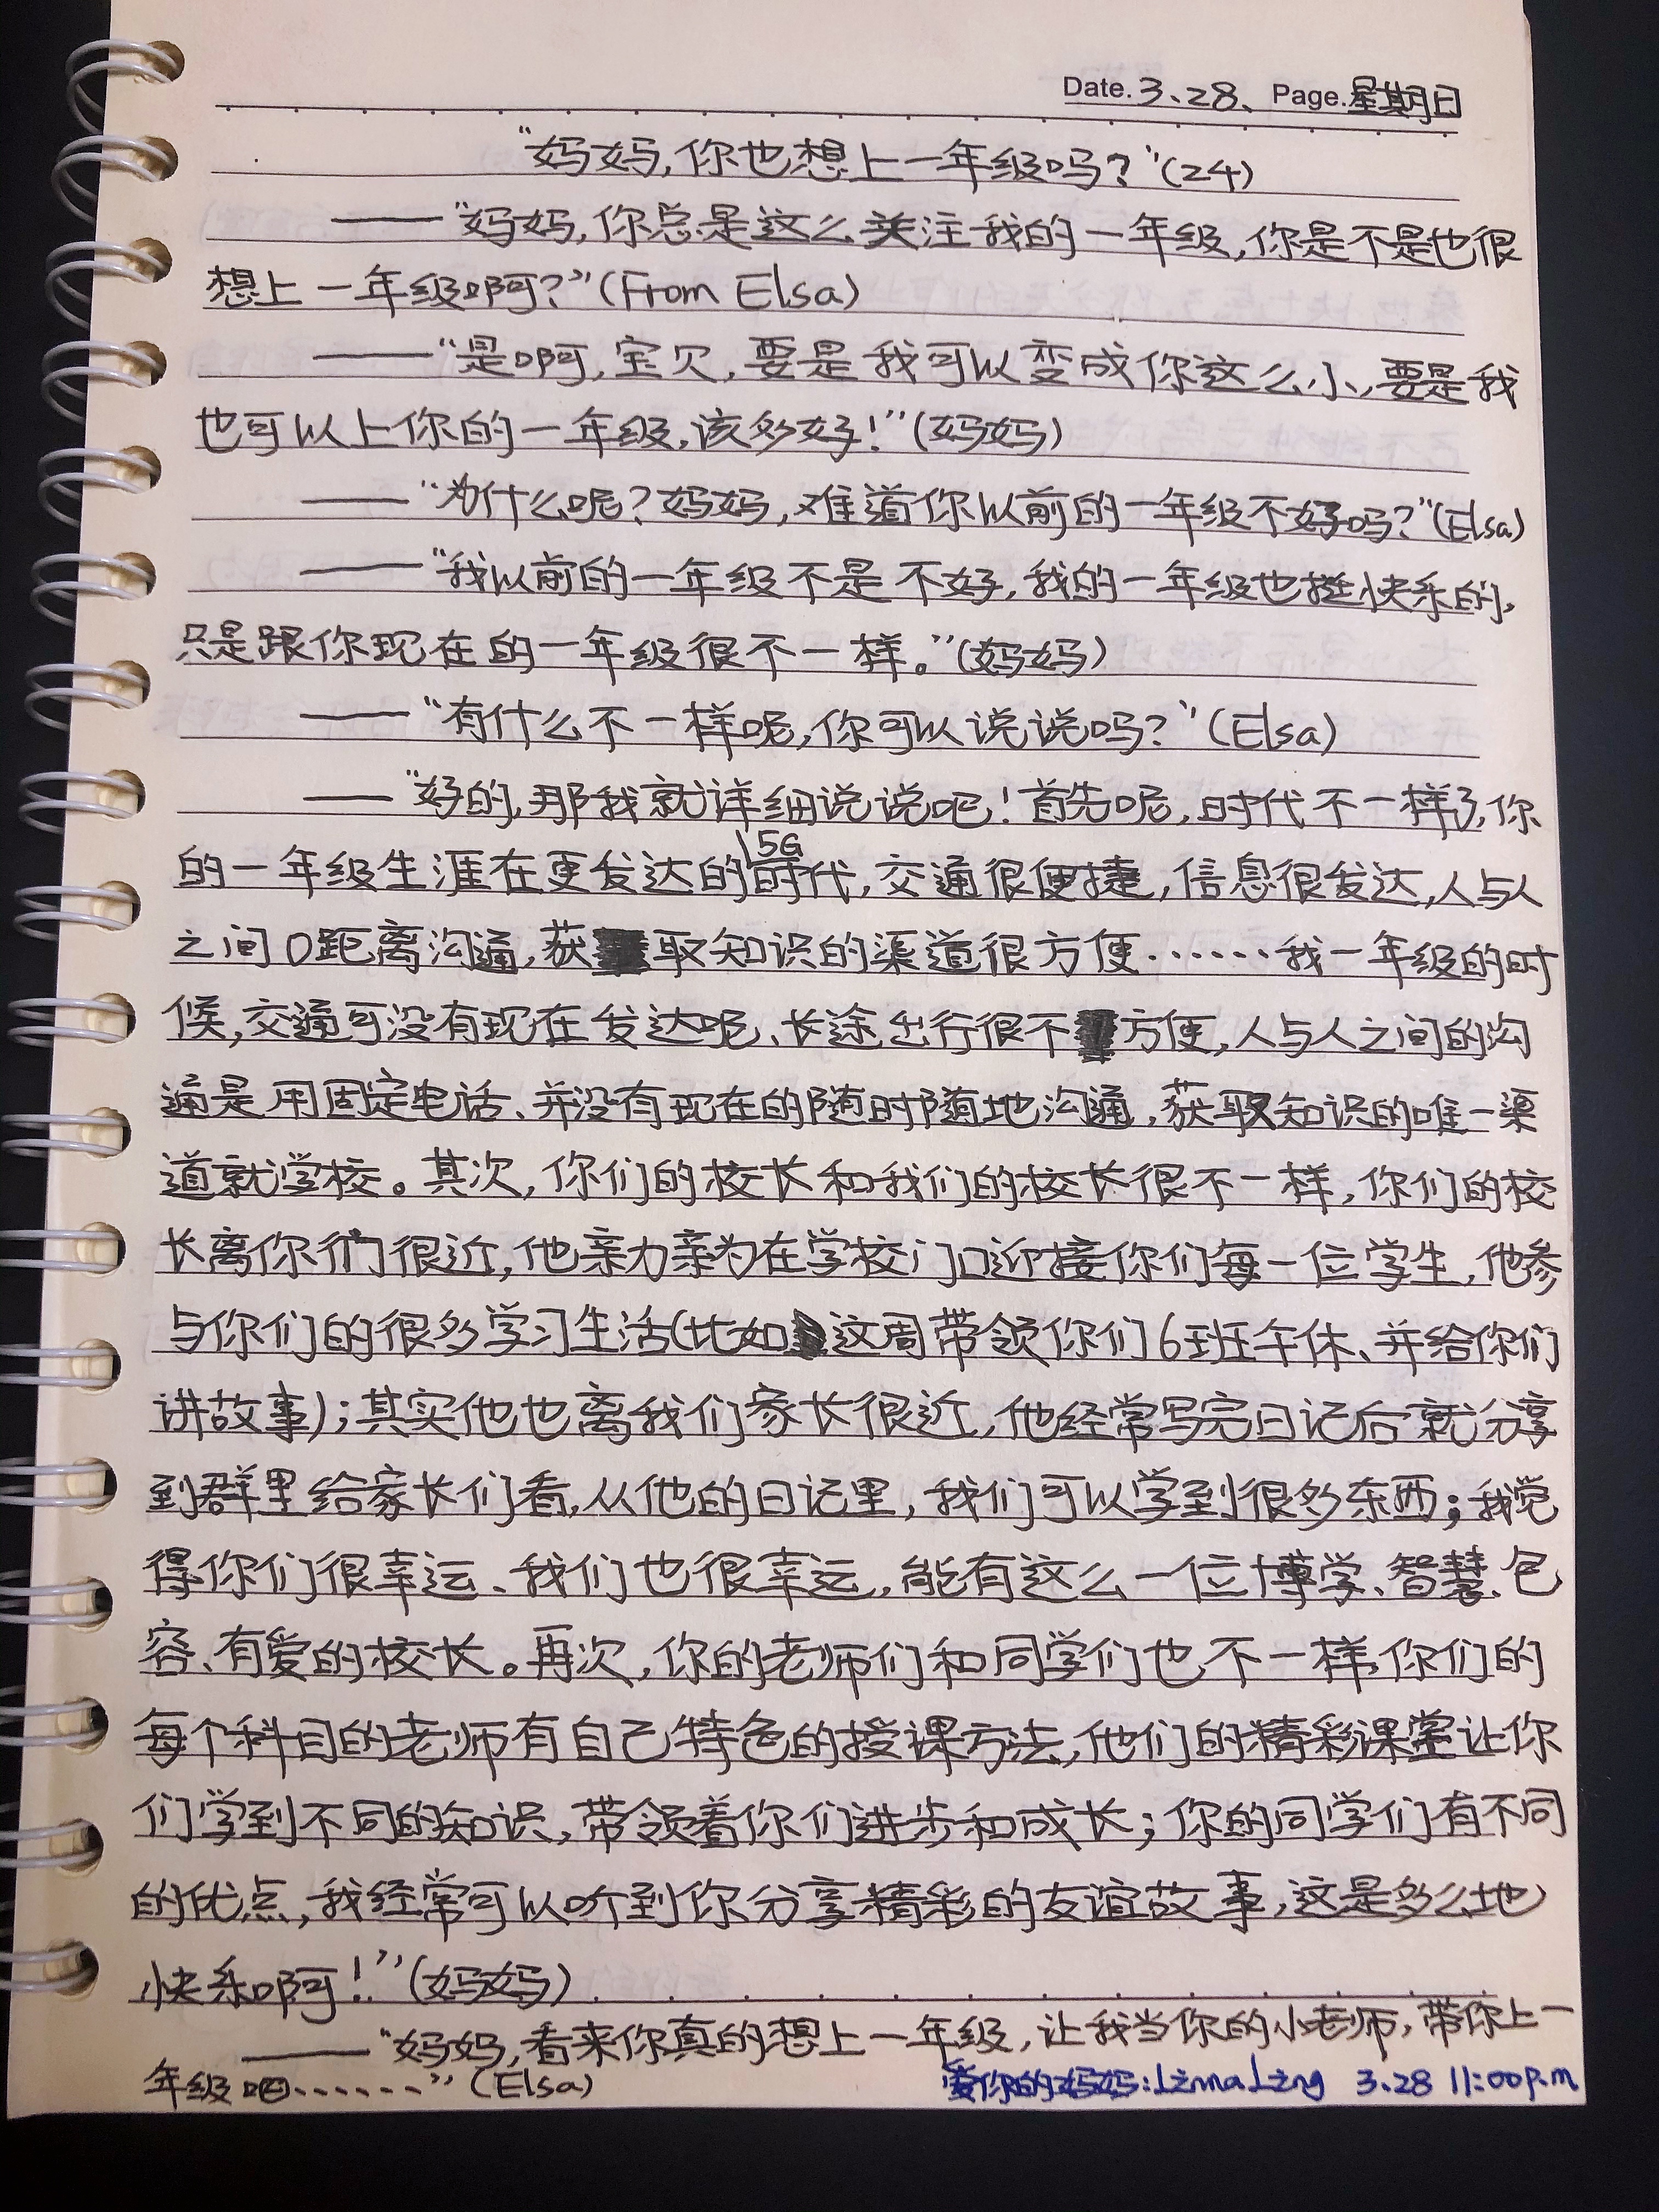 Date. 3、28、 Page. 星期日
“妈妈,你也想上一年级吗？”(24)
——“妈妈,你总是这么关注我的一年级,你是不是也很
想上一年级啊?”(From Elsa)
——“是啊,宝贝,要是我可以变成你这么小,要是我
也可以上你的一年级,该多好!”(妈妈)
——“为什么呢?妈妈,难道你以前的一年级不好吗?”(Elsa)
——“我以前的一年级不是不好,我的一年级也挺快乐的,
只是跟你现在的一年级很不一样。”(妈妈)
——“有什么不一样呢,你可以说说吗?”(Elsa)
——“好的,那我就详细说说吧!首先呢,时代不一样了,你
的一年级生涯在更发达的5G时代,交通很便捷,信息很发达,人与人
之间0距离沟通,获取知识的渠道很方便······我一年级的时
候,交通可没有现在发达呢、长途出行很不方便,人与人之间的沟
通是用固定电话、并没有现在的随时随地沟通,获取知识的唯一渠
道就学校。其次,你们的校长和我们的校长很不一样,你们的校
长离你们很近,他亲力亲为在学校门口迎接你们每一位学生,他参
与你们的很多学习生活(比如这周带领你们6班午休、并给你们
讲故事);其实他也离我们家长很近,他经常写完日记后就分享
到群里给家长们看,从他的日记里,我们可以学到很多东西;我觉
得你们很幸运、我们也很幸运,能有这么一位博学、智慧、包
容、有爱的校长。再次,你的老师们和同学们也不一样,你们的
每个科目的老师有自己特色的授课方法,他们的精彩课堂让你
们学到不同的知识,带领着你们进步和成长;你的同学们有不同
的优点,我经常可以听到你分享精彩的友谊故事,这是多么地
快乐啊!”(妈妈)
——“妈妈,看来你真的想上一年级,让我当你的小老师,带你上一
年级吧······”(Elsa)
爱你的妈妈: 3.28 11:00p.m